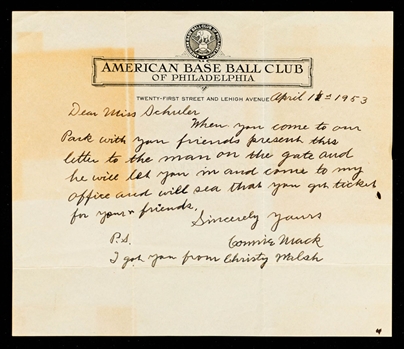 AMERICAN BASE BALL CLUB
OF PHILADELPHIA
TWENTY-FIRST STREET AND LEHIGH AVENUE
April 1953
Dear Miss Schuler
When you come to our
Park with you friends present this
letter to the man on the gate and
he will let you in and come to my
office and will sea that you got ticket
for your friends.
Sincerely Yours
Connie Mack
P.S.
I got you from Christy Walsh